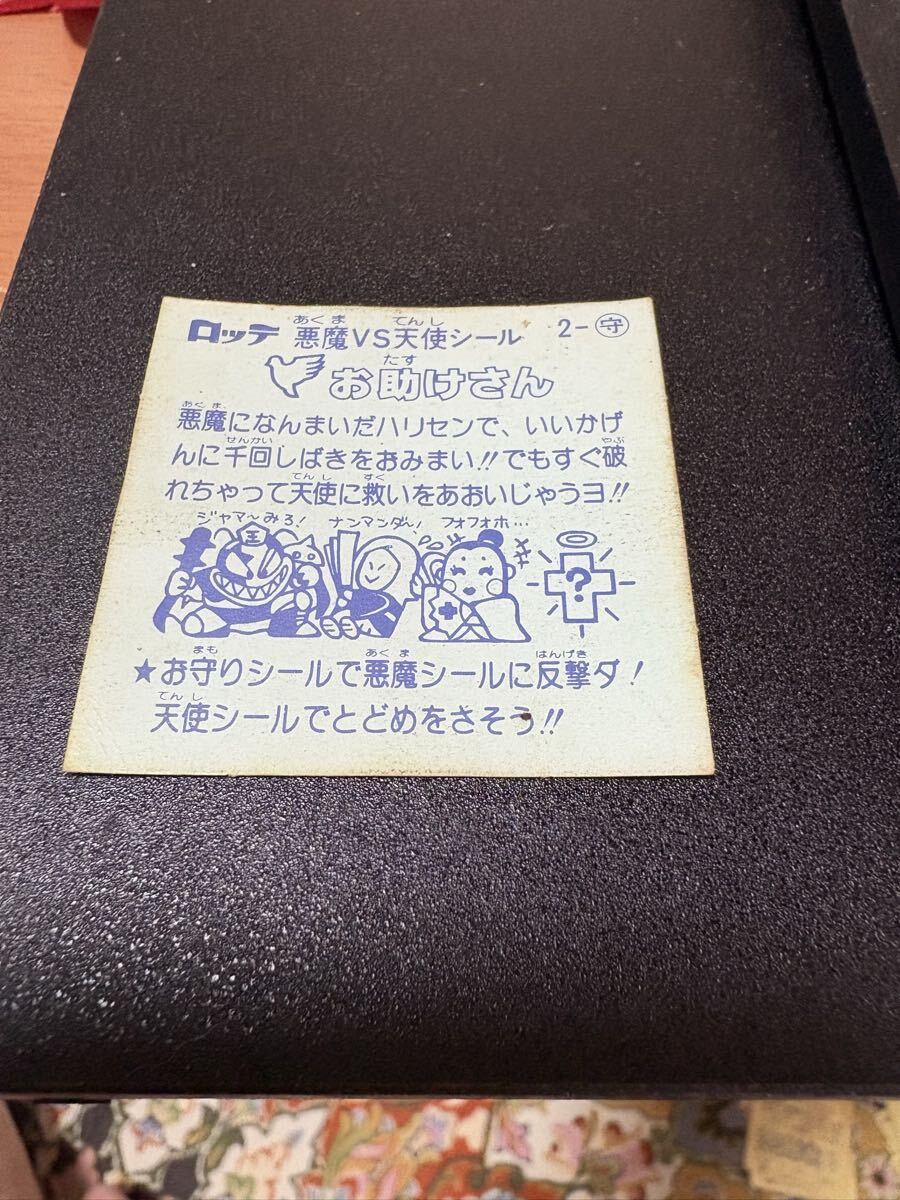 ロッテ 悪魔VS天使シール 2-守
あくま てんし
お助けさん
たす
悪魔になんまいだハリセンで、いいかげ
あくま
んに千回しばきをおみまい!!でもすぐ破
せんかい やぶ
れちゃって天使に救いをあおいじゃうヨ!!
てんし すく
ジャマ〜みろ! ナンマンダ〜! フォフォホ…
王
?
★お守りシールで悪魔シールに反撃ダ!
まも あくま はんげき
天使シールでとどめをさそう!!
てんし